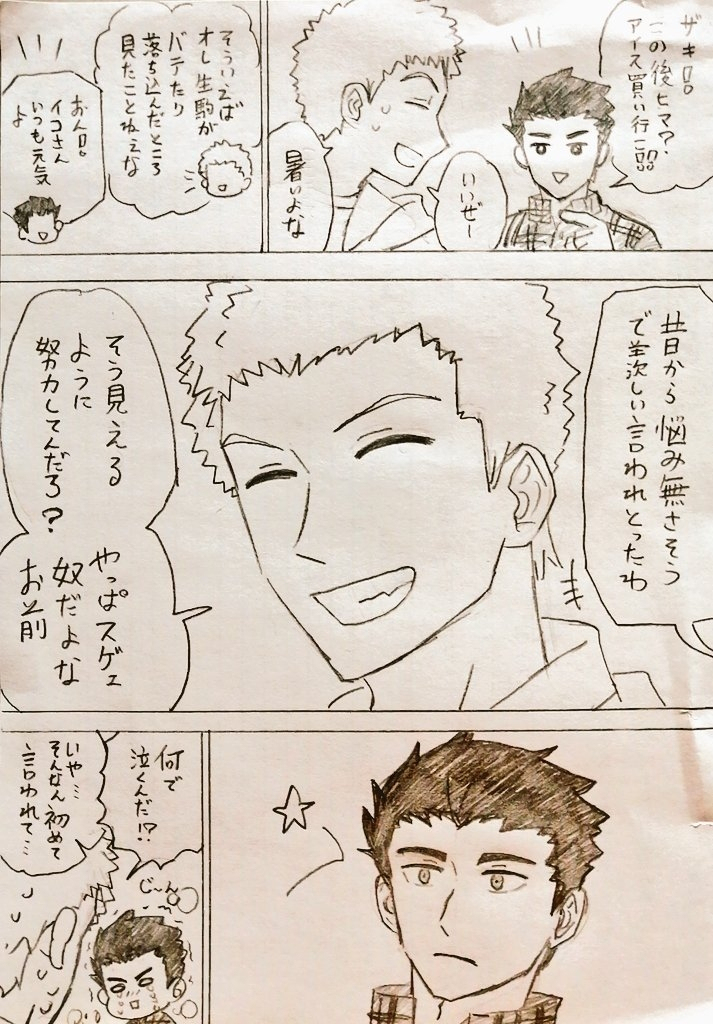 ザキ!!
この後ヒマ?
アイス買い行こ!!
いいぜー
暑いよな
そういえば
オレ生駒が
バテたり
落ち込んだところ
見たことねえな
おん!!
イコさん
いつも元気
よ
昔から悩み無さそう
で羨しい言われとったわ
そう見える
ように
努力してんだろ?
やっぱスゲェ
奴だよな
お前
何で
泣くんだ!?
じ〜ん
いや…
そんなん初めて
言われて…